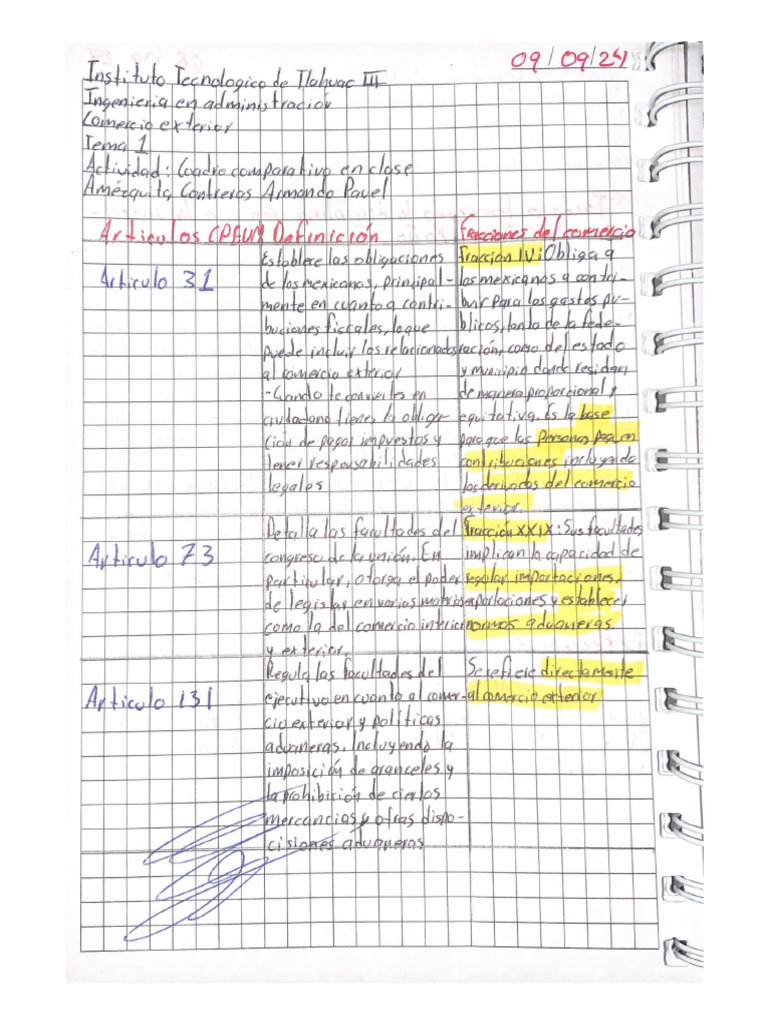 09/09/24
Instituto Tecnologico de Tlahuac III
Ingenieria en administración
Comercio exterior
Tema 1
Actividad: Cuadro comparativo en clase
Amézquita Contreras Armando Pavel
Articulos CPEUM Definición Fracciones del comercio
Articulo 31
Establece las obligaciones
de los mexicanos, principal-
mente en cuanto a contri-
buciones fiscales, lo que
puede incluir los relacionados
al comercio exterior
-Cuando te conviertes en
ciudadano tienes la obliga-
ción de pagar impuestos y
tener responsabilidades
legales
Fracción IV: Obliga a
los mexicanos a contri-
buir para los gastos pú-
blicos, tanto de la fede-
ración, como del estado
y municipio donde residan
de manera proporcional y
equitativa. Es la base
para que las personas paguen
contribuciones incluyendo
los derivados del comercio
exterior.
Articulo 73
Detalla las facultades del
congreso de la unión. En
particular, otorga el poder
de legislar en varias matrias
como la del comercio interior
y exterior.
Fracción XXIX: Sus facultades
implican la capacidad de
regular importaciones,
exportaciones y establecer
normas aduaneras.
Articulo 131
Regula las facultades del
ejecutivo en cuanto al comer-
cio exterior y políticas
aduaneras, incluyendo la
imposición de aranceles y
la prohibición de ciertas
mercancias y otras dispo-
cisiones aduaneras
Se refiere directamente
al comercio exterior